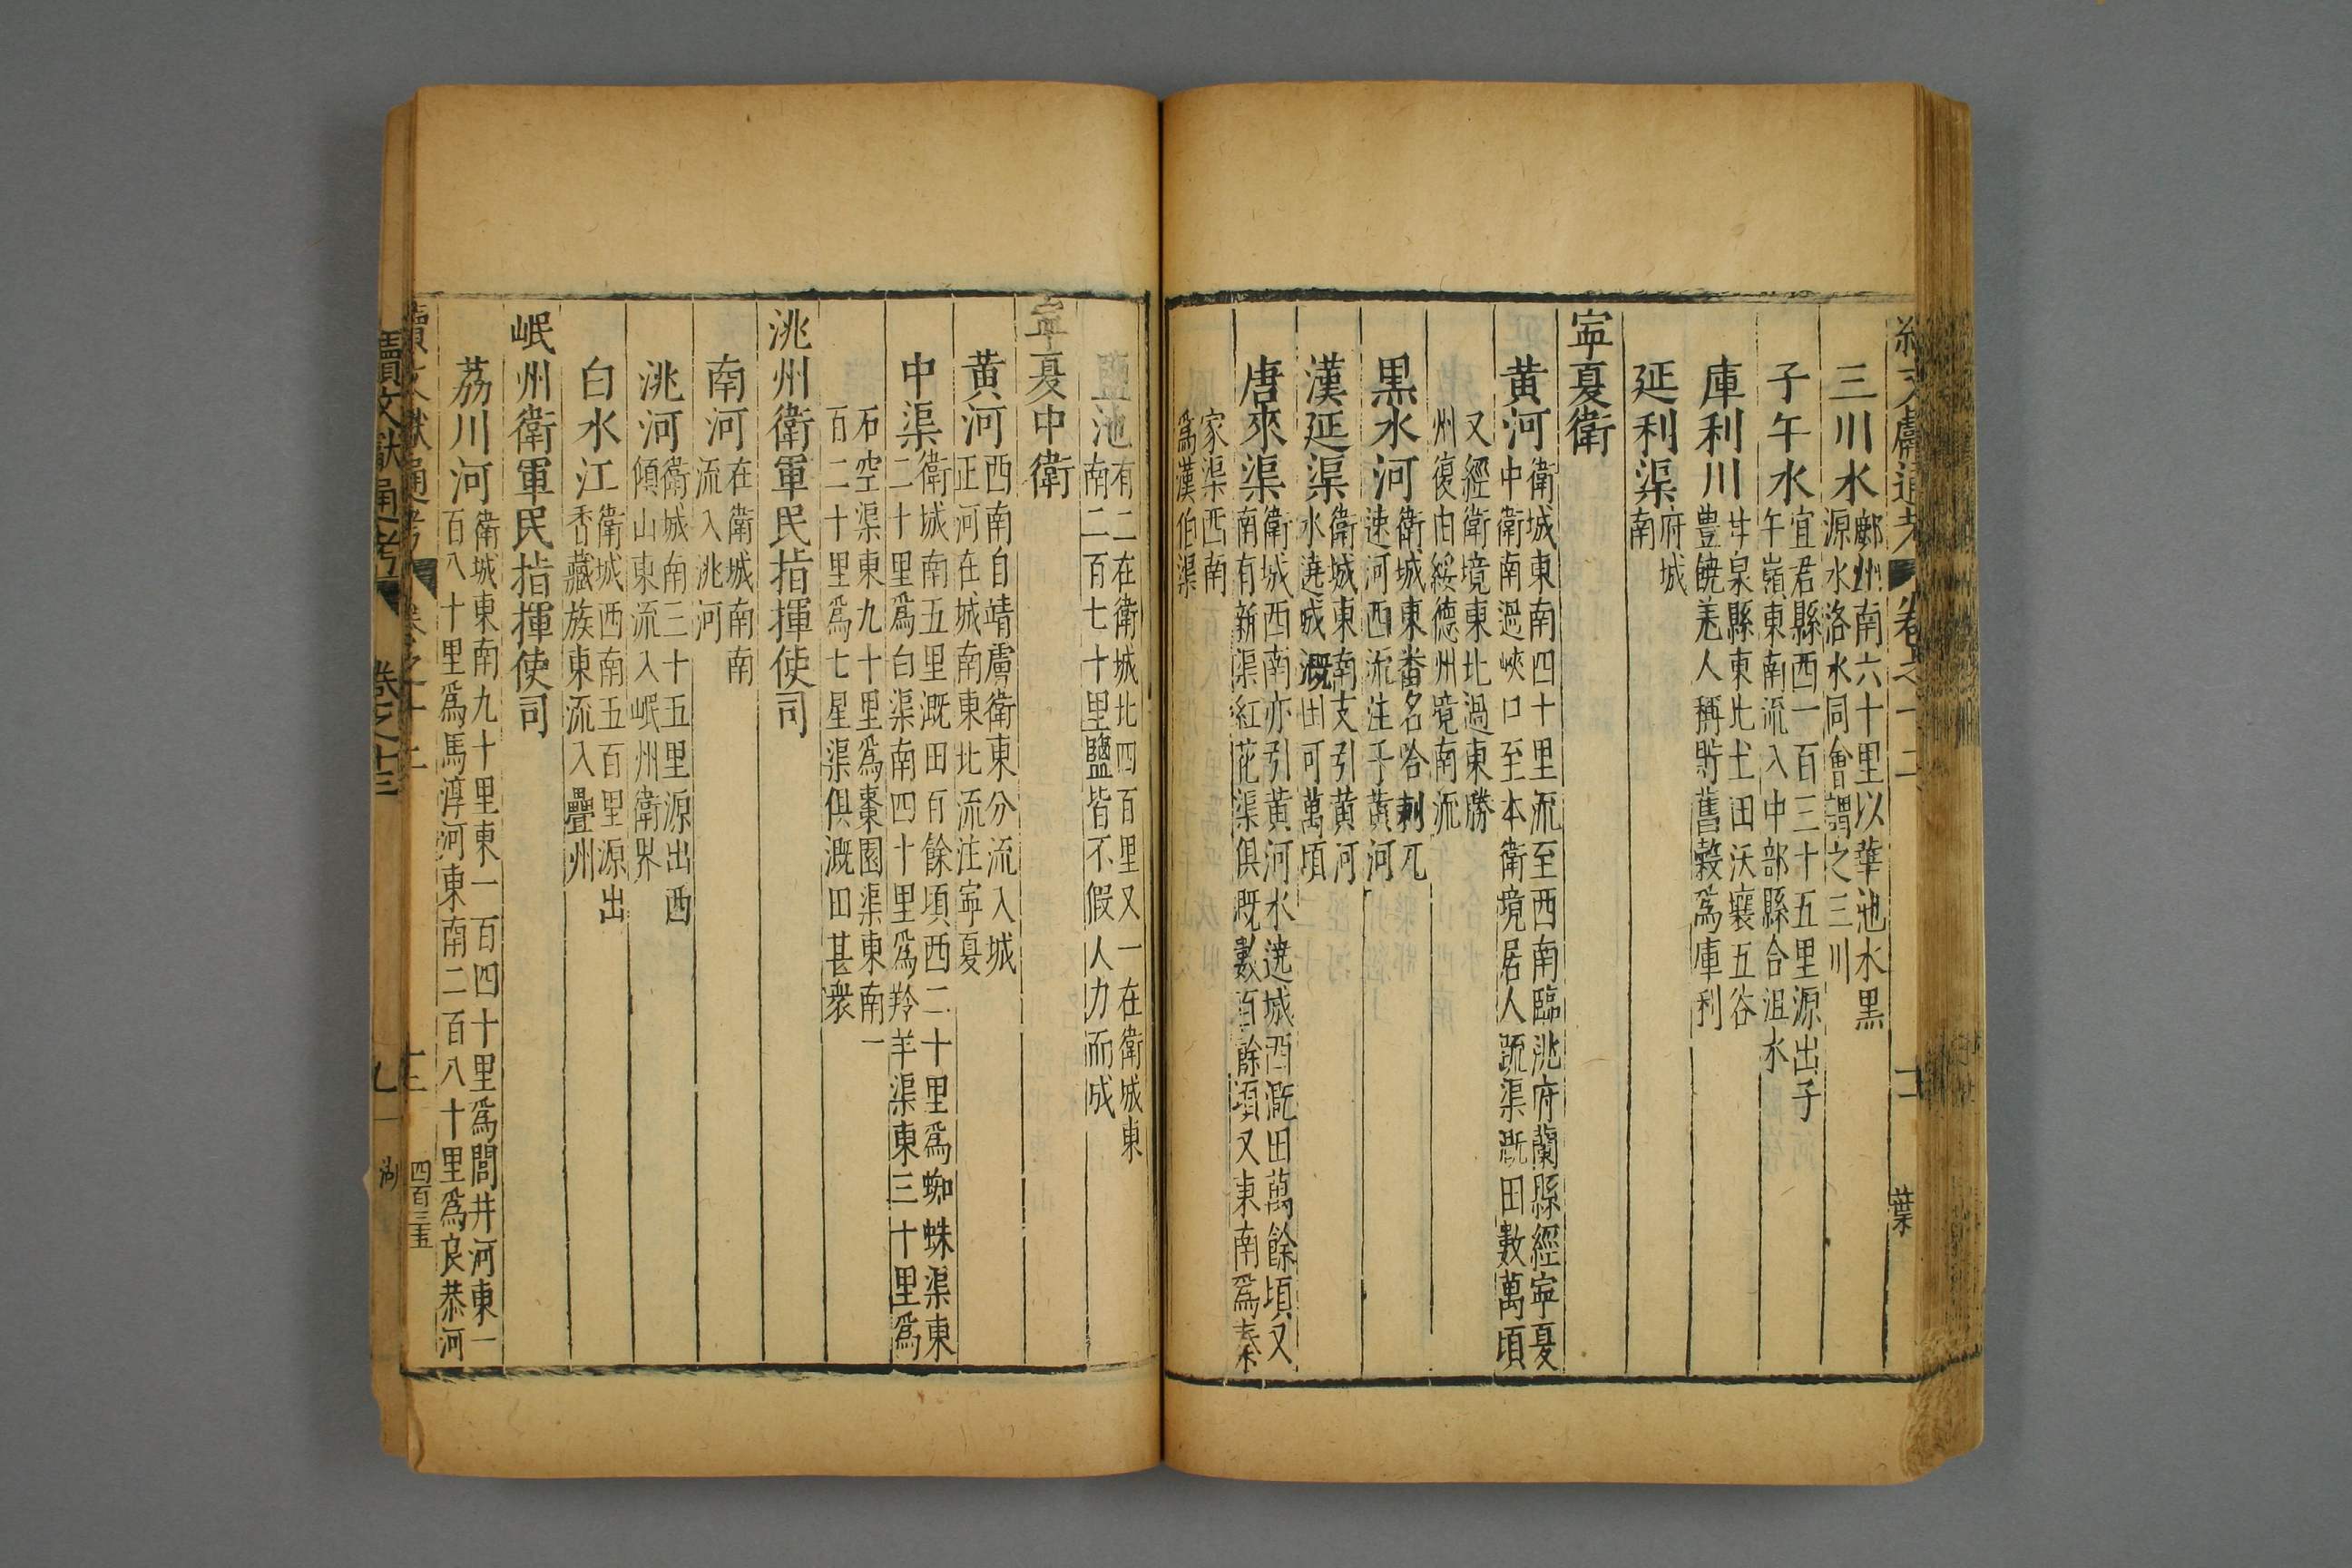 三川水鄜州南六十里以華池水黑
源水洛水同會謂之三川
子午水宜君縣西一百三十五里源出子
午嶺東南流入中部縣合沮水
庫利川甘泉縣東北土田沃襄五谷
豊饒羌人稱貯舊榖爲庫利
延利渠府城
南
寧夏衛
黄河衛城東南四十里流至西南臨洮府蘭縣經寧夏
中衛南過峽口至本衛境居人疏渠漑田數萬頃
又經衛境東北過東勝
州復由綏德州境南流
黒水河衛城東畨名哈剌兀
速河西流注于黄河
漢延渠衛城東南支引黄河
水遶城漑田可萬頃
唐來渠衛城西南亦引黄河水遶城西漑田萬餘頃又
南有新渠紅花渠俱漑數百餘頃又東南爲秦
家渠西南
爲漢伯渠
鹽池有二在衛城北四百里又一在衛城東
南二百七十里鹽皆不假人力而成
寧夏中衛
黄河西南自靖虜衛東分流入城
正河在城南東北流注寧夏
中渠衛城南五里漑田百餘頃西二十里爲蜘蛛渠東
二十里爲白渠南四十里爲羚羊渠東三十里爲
石空渠東九十里爲棗園渠東南一
百二十里爲七星渠俱漑田甚衆
洮州衛軍民指揮使司
南河在衛城南南
流入洮河
洮河衛城南三十五里源出西
傾山東流入岷州衛界
白水江衛城西南五百里源出
香藏族東流入疊州
岷州衛軍民指揮使司
荔川河衛城東南九十里東一百四十里爲閭井河東一
百八十里爲馬淳河東南二百八十里爲良恭河
續文獻通考 卷之十三